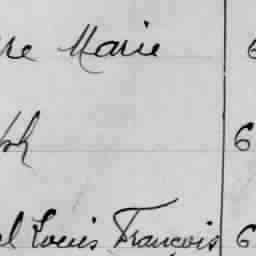 re Marie 6
ph 6
el Louis François 6